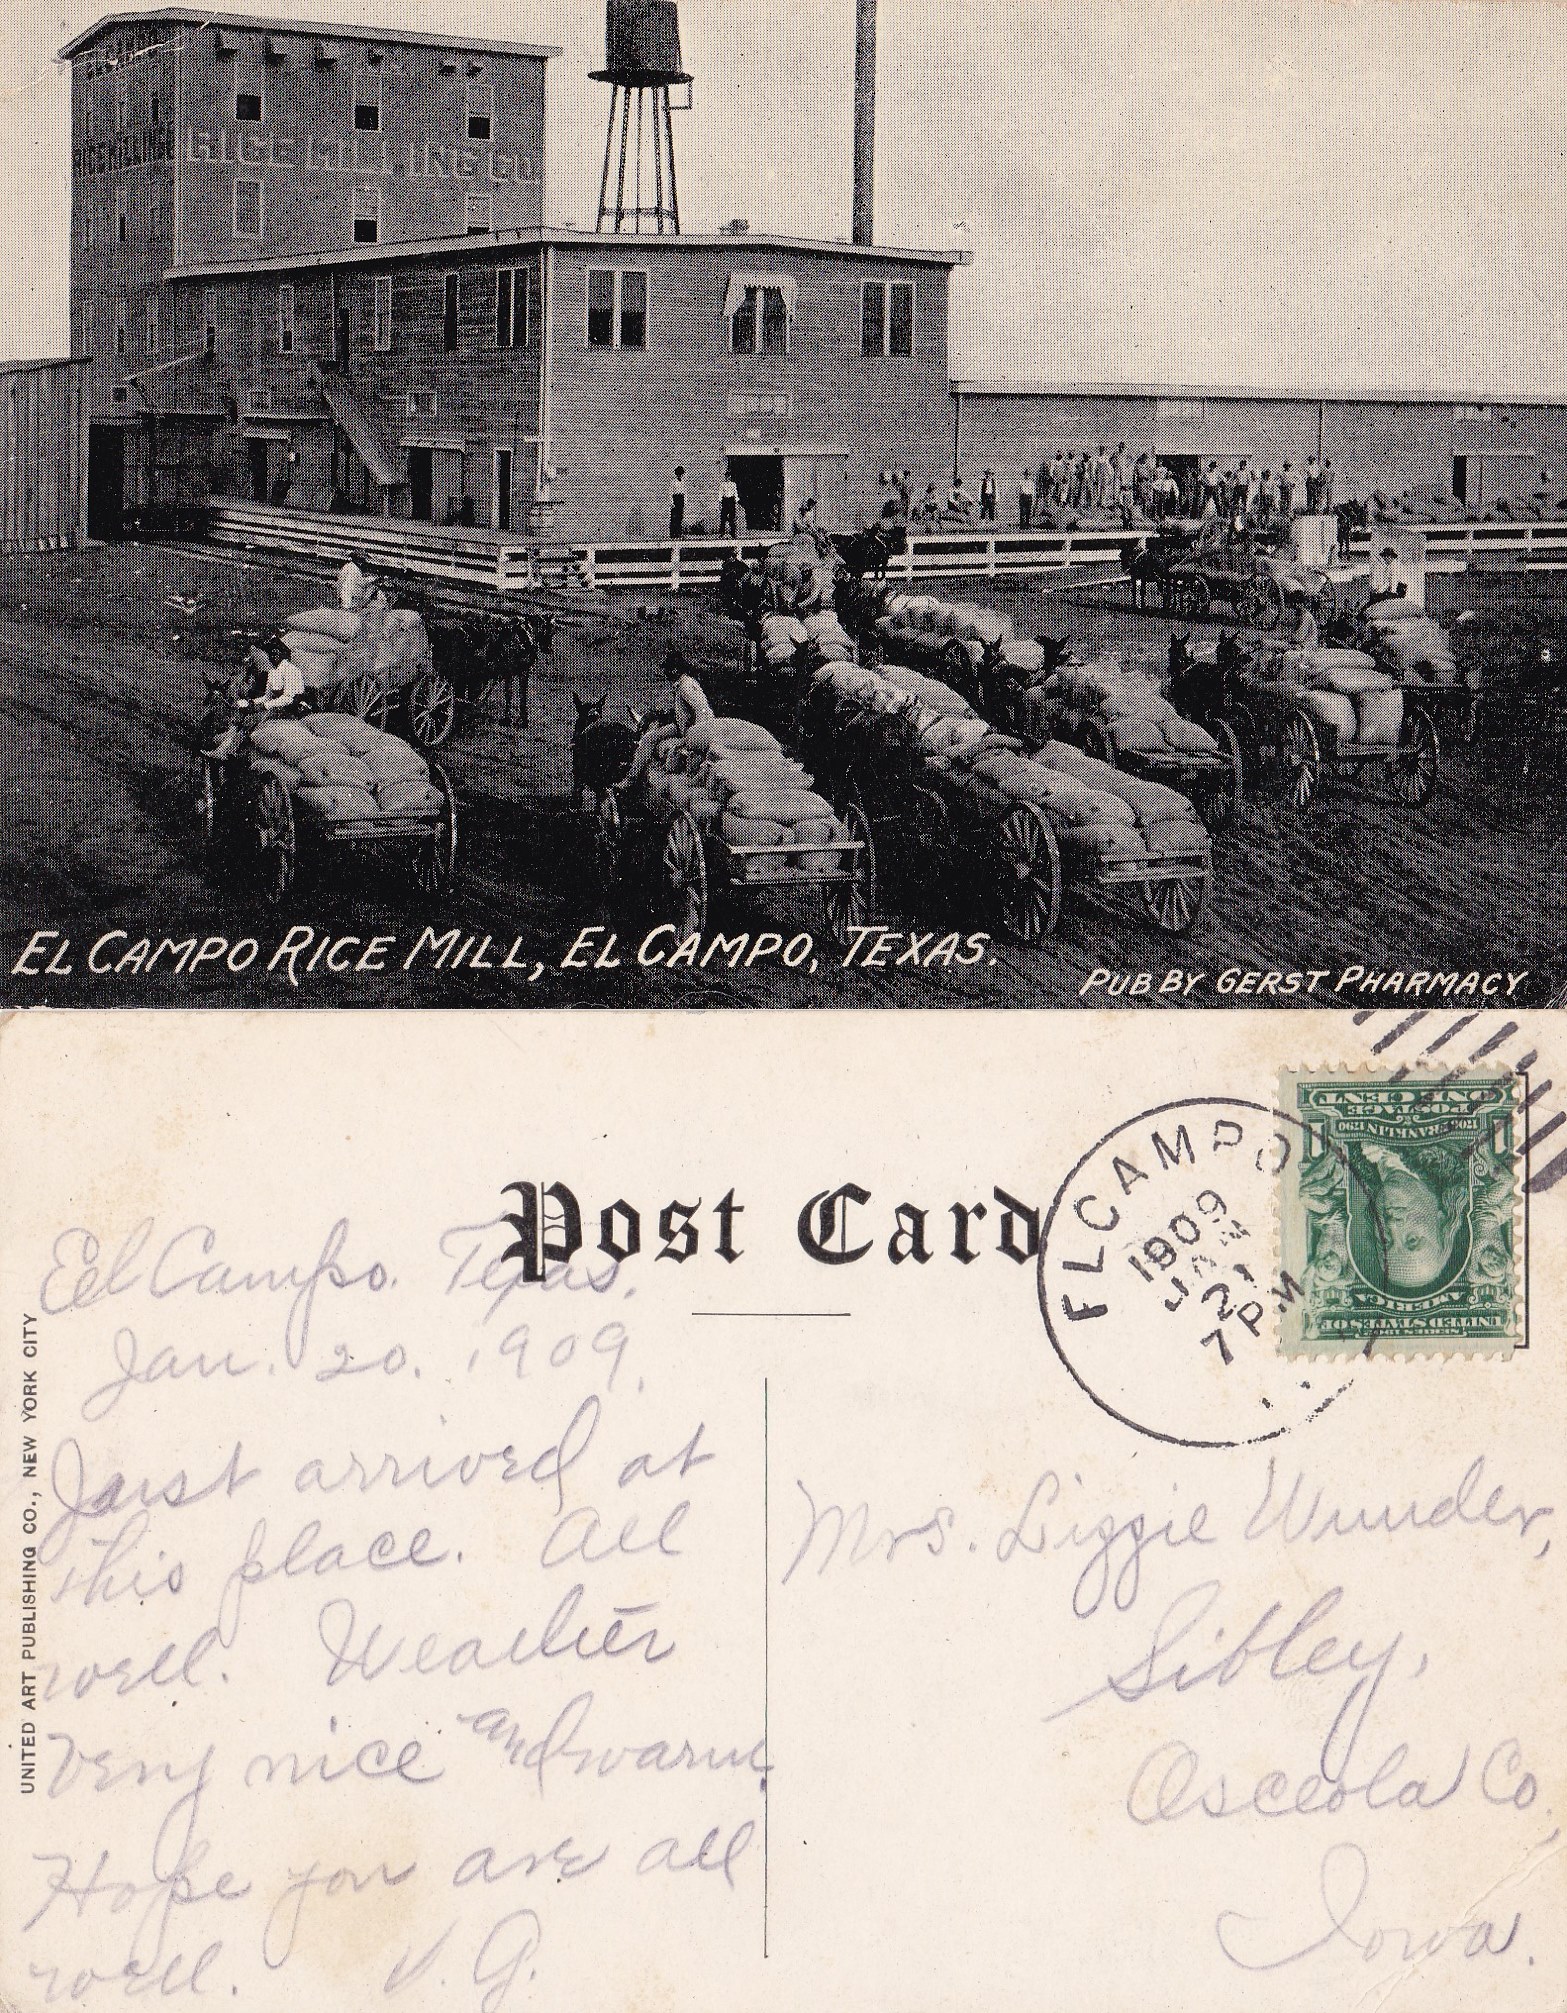 RICE MILLING CO.
EL CAMPO RICE MILL, EL CAMPO, TEXAS.
PUB BY GERST PHARMACY
Post Card
EL CAMPO
1909
JAN
21
7 PM
ONE CENT
POSTAGE
1706 FRANKLIN 1790
1 1
SERIES 1902
UNITED STATES OF
AMERICA
UNITED ART PUBLISHING CO., NEW YORK CITY
El Campo. Texas.
Jan. 20. 1909.
Just arrived at
this place. All
well. Weather
very nice and warm.
Hope you are all
well. V. G.
Mrs. Lizzie Wunder,
Sibley,
Osceola Co.,
Iowa.